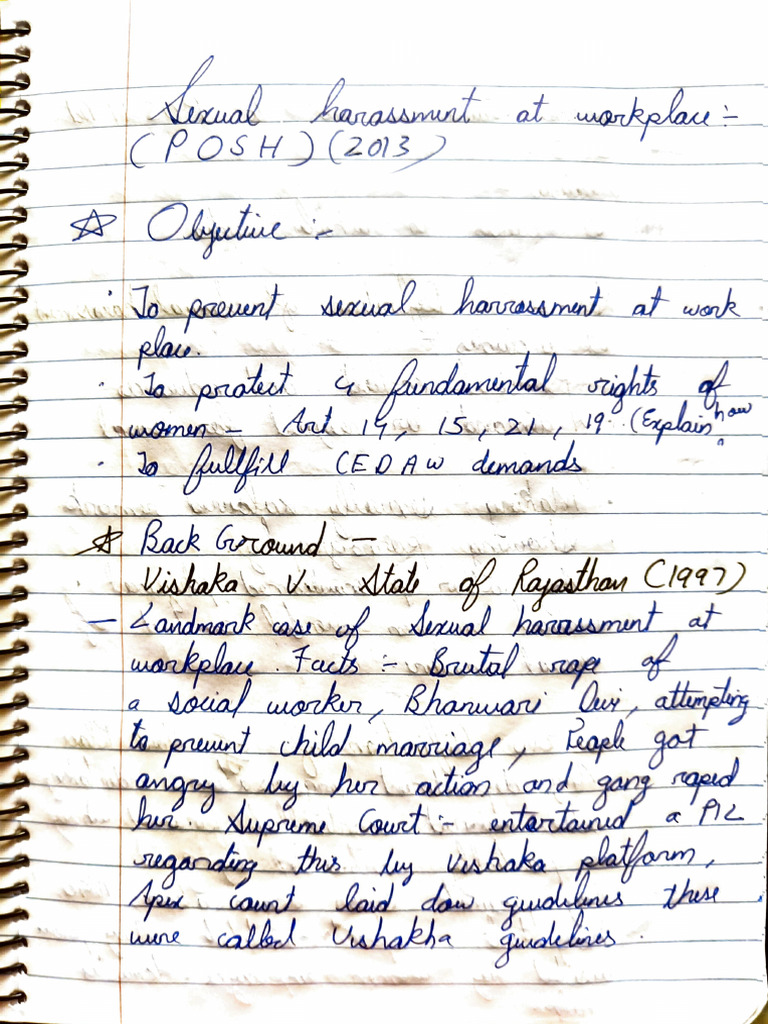 Sexual harassment at workplace :-
(POSH) (2013)
☆ Objective :-
· To prevent sexual harrassment at work
place.
· To protect 4 fundamental rights of
women - Art 14, 15, 21, 19 (Explain how
· To fullfill CEDAW demands
☆ Back Ground -
Vishaka V State of Rajasthan (1997)
- Landmark case of Sexual harassment at
workplace. Facts :- Brutal rape of
a social worker, Bhanwari Devi, attempting
to prevent child marriage, People got
angry by her action and gang raped
her. Supreme Court :- entertained a PIL
regarding this by Vishaka platform,
Apex court laid dow guidelines these
were called Vishakha guidelines.